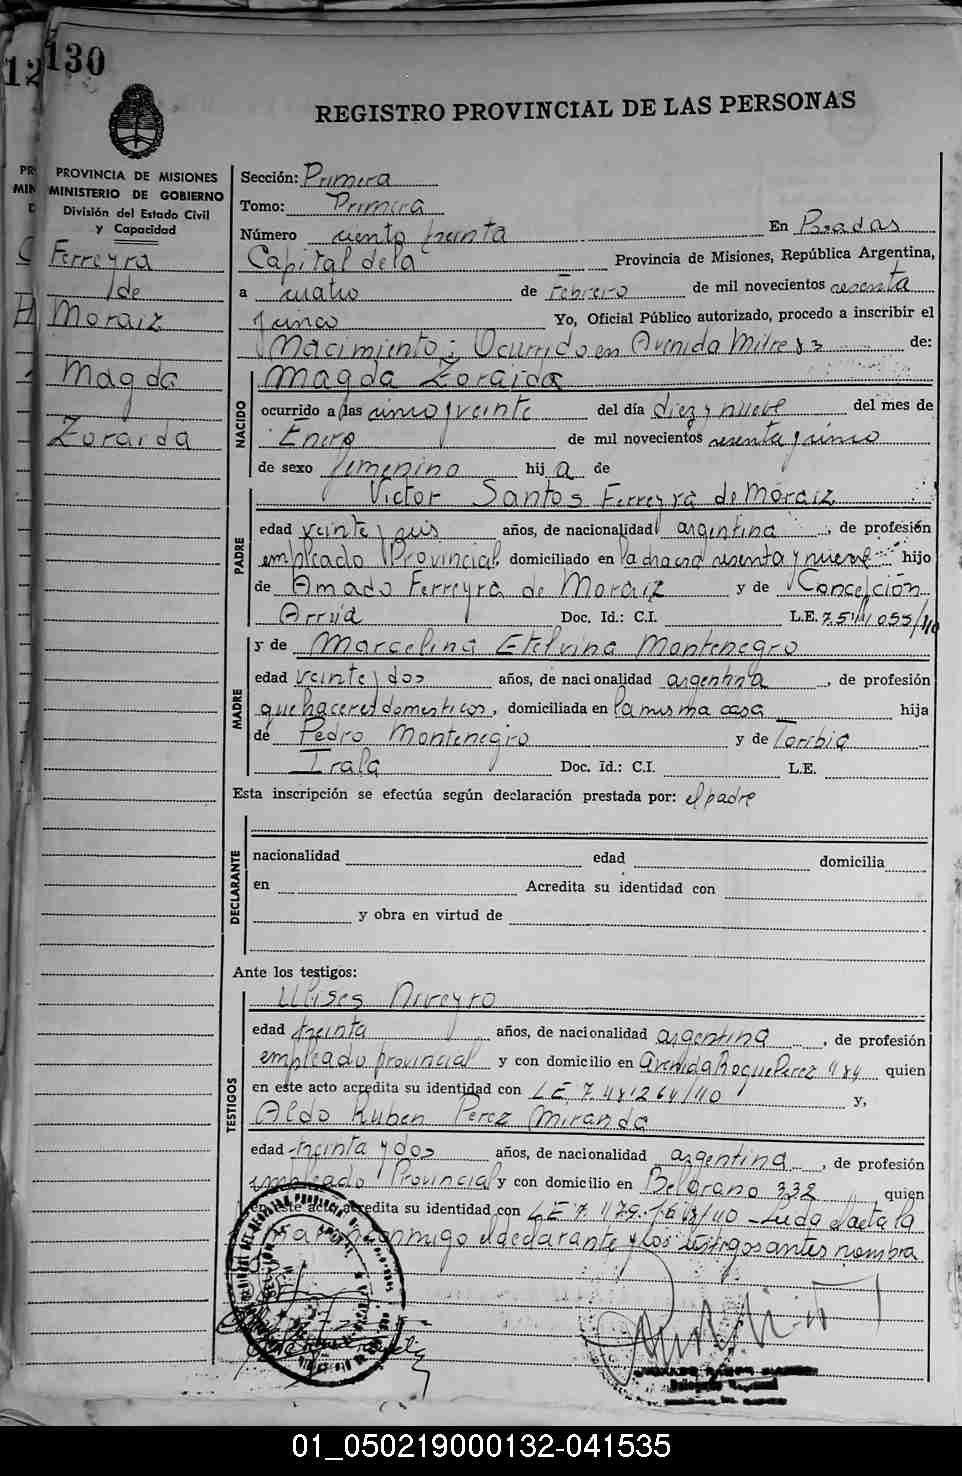 130
12
REGISTRO PROVINCIAL DE LAS PERSONAS
PROVINCIA DE MISIONES
MINISTERIO DE GOBIERNO
División del Estado Civil
y Capacidad
Ferreyra
de
Moraiz
Magda
Zoraida
Sección: Primera
Tomo: Primera
Número ciento treinta En Posadas
Capital de la Provincia de Misiones, República Argentina,
a cuatro de Febrero de mil novecientos sesenta
y cinco Yo, Oficial Público autorizado, procedo a inscribir el
Nacimiento: Ocurrido en Avenida Mitre 82 de:
NACIDO
Magda Zoraida
ocurrido a las cinco y veinte del día diez y nueve del mes de
Enero de mil novecientos sesenta y cinco
de sexo femenino hij a de
PADRE
Victor Santos Ferreyra de Moraiz
edad veinte y seis años, de nacionalidad argentina, de profesión
empleado Provincial, domiciliado en la chacra sesenta y nueve hijo
de Amado Ferreyra de Moraiz y de Concepción
Arrúa Doc. Id.: C.I. L.E.
MADRE
y de Marcelina Etelvina Montenegro
edad veinte y dos años, de nacionalidad argentina, de profesión
quehaceres domesticos, domiciliada en la misma casa hija
de Pedro Montenegro y de Toribia
Irala Doc. Id.: C.I. L.E.
Esta inscripción se efectúa según declaración prestada por: el padre
DECLARANTE
nacionalidad edad domicilia
en Acredita su identidad con
y obra en virtud de
Ante los testigos:
TESTIGOS
Ulises Niveyro
edad treinta años, de nacionalidad argentina, de profesión
empleado provincial y con domicilio en Avenida Roque Perez 484 quien
en este acto acredita su identidad con L.E. 7.481264/40 y,
Aldo Ruben Perez Miranda
edad treinta y dos años, de nacionalidad argentina, de profesión
empleado Provincial y con domicilio en Belgrano 332 quien
en este acto acredita su identidad con L.E. 7. Leida el acta la
firman conmigo el declarante y los testigos antes nombra
01_050219000132-041535